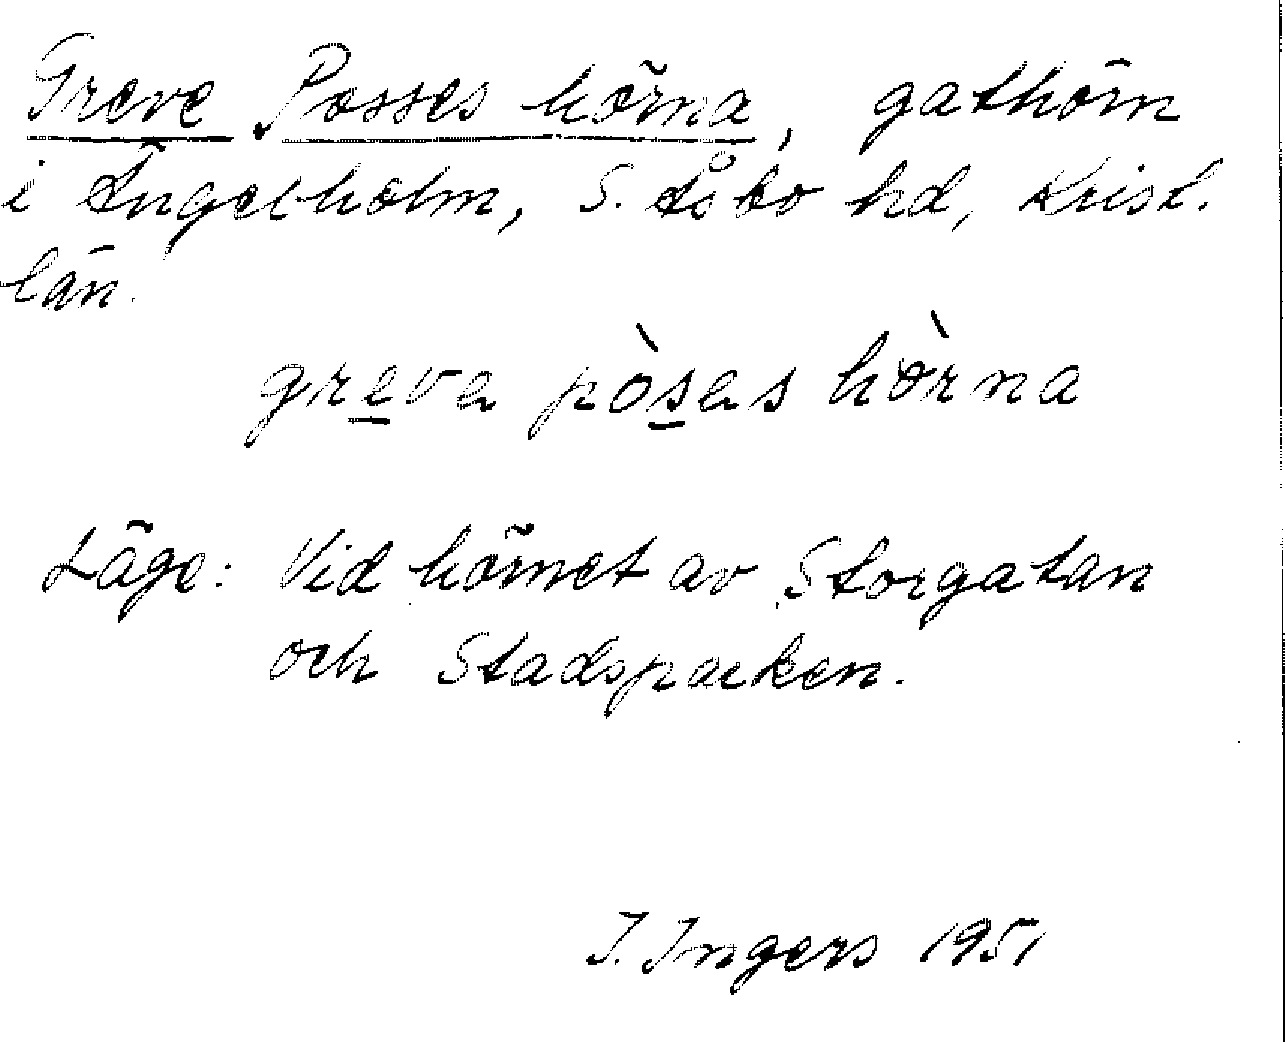 Greve Posses hörna, gathörn
i Ängelholm, S. Åsbo hd, Krist.
län.
greva pòsas hòrna
Läge: Vid hörnet av Storgatan
och Stadsparken.
I. Ingers 1951